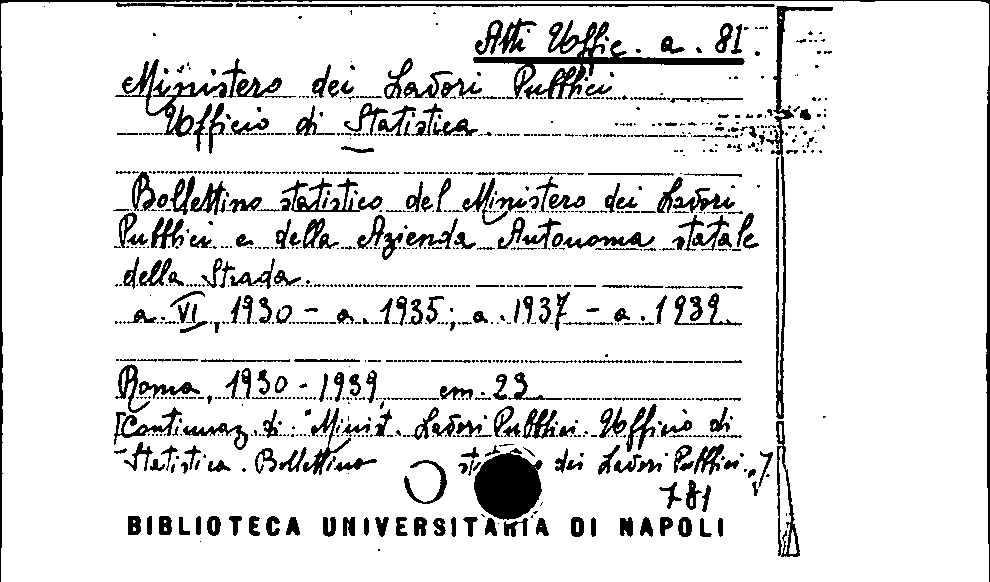 Atti Uffic. a. 81.
Ministero dei Lavori Pubblici.
Ufficio di Statistica.
Bollettino statistico del Ministero dei Lavori
Pubblici e della Azienda Autonoma statale
della Strada.
a. VI, 1930 - a. 1935; a. 1937 - a. 1939.
Roma, 1930 - 1939, cm. 23.
[Continuaz. di: Minist. Lavori Pubblici. Ufficio di
Statistica. Bollettino dei Lavori Pubblici.]
781
BIBLIOTECA UNIVERSITARIA DI NAPOLI